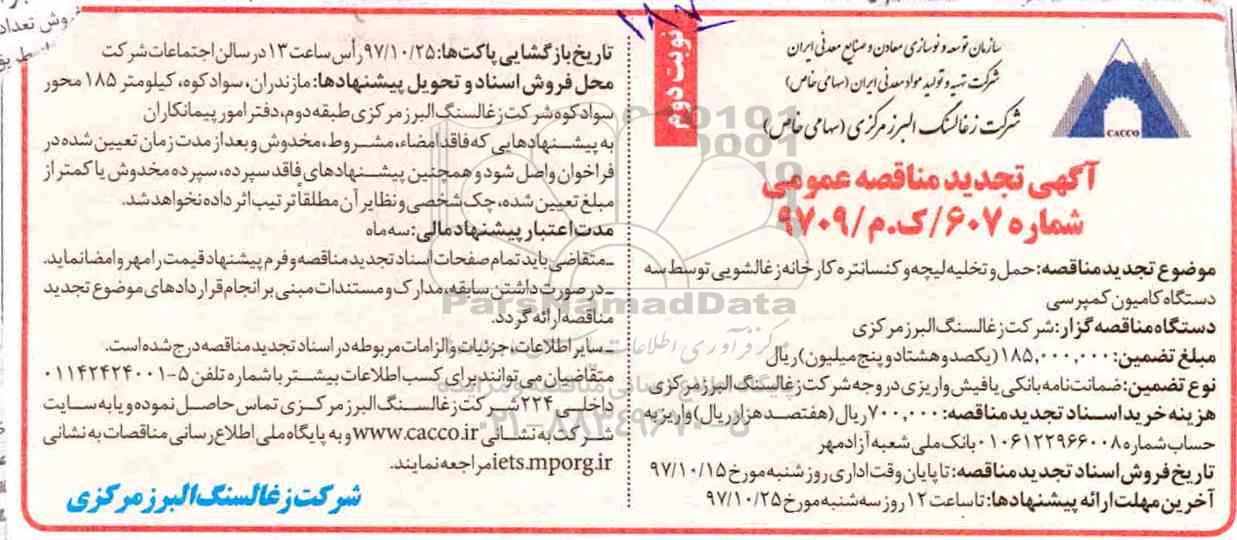 نوبت دوم
سازمان توسعه و نوسازی معادن و صنایع معدنی ایران
شرکت تهیه و تولید مواد معدنی ایران (سهامی خاص)
شرکت زغالسنگ البرز مرکزی (سهامی خاص)
CACCO
آگهی تجدید مناقصه عمومی
شماره ۶۰۷/ک.م/۹۷۰۹
موضوع تجدید مناقصه: حمل و تخلیه لیچه و کنسانتره کارخانه زغالشویی توسط سه
دستگاه کامیون کمپرسی
دستگاه مناقصه گزار: شرکت زغالسنگ البرز مرکزی
مبلغ تضمین: ۱۸۵,۰۰۰,۰۰۰ (یکصد و هشتاد و پنج میلیون) ریال
نوع تضمین: ضمانت نامه بانکی یا فیش واریزی در وجه شرکت زغالسنگ البرز مرکزی
هزینه خرید اسناد تجدید مناقصه: ۷۰۰,۰۰۰ ریال (هفتصد هزار ریال) واریز به
حساب شماره ۰۱۰۶۱۲۲۹۶۶۰۰۸ بانک ملی شعبه آزادمهر
تاریخ فروش اسناد تجدید مناقصه: تا پایان وقت اداری روز شنبه مورخ ۹۷/۱۰/۱۵
آخرین مهلت ارائه پیشنهادها: تا ساعت ۱۲ روز سه شنبه مورخ ۹۷/۱۰/۲۵
تاریخ بازگشایی پاکت‌ها: ۹۷/۱۰/۲۵ رأس ساعت ۱۳ در سالن اجتماعات شرکت
محل فروش اسناد و تحویل پیشنهادها: مازندران، سوادکوه، کیلومتر ۱۸۵ محور
سوادکوه شرکت زغالسنگ البرز مرکزی طبقه دوم، دفتر امور پیمانکاران
به پیشنهادهایی که فاقد امضاء، مشروط، مخدوش و بعد از مدت زمان تعیین شده در
فراخوان واصل شود و همچنین پیشنهادهای فاقد سپرده، سپرده مخدوش یا کمتر از
مبلغ تعیین شده، چک شخصی و نظایر آن مطلقاً ترتیب اثر داده نخواهد شد.
مدت اعتبار پیشنهاد مالی: سه ماه
ـ متقاضی باید تمام صفحات اسناد تجدید مناقصه و فرم پیشنهاد قیمت را مهر و امضا نماید.
ـ در صورت داشتن سابقه، مدارک و مستندات مبنی بر انجام قراردادهای موضوع تجدید
مناقصه ارائه گردد.
ـ سایر اطلاعات، جزئیات و الزامات مربوطه در اسناد تجدید مناقصه درج شده است.
متقاضیان می توانند برای کسب اطلاعات بیشتر با شماره تلفن ۵-۰۱۱۴۲۴۲۴۰۰۱
داخلی ۲۲۴ شرکت زغالسنگ البرز مرکزی تماس حاصل نموده و یا به سایت
شرکت به نشانی www.cacco.ir و به پایگاه ملی اطلاع رسانی مناقصات به نشانی
iets.mporg.ir مراجعه نمایند.
شرکت زغالسنگ البرز مرکزی
ParsNamadData
۰۲۱-۸۸۳۴۹۶۷۰-۵